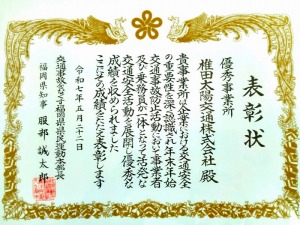 表彰状
優秀事業所
椎田太陽交通株式会社 殿
貴事業所は企業における交通安全
の重要性を深く認識され年末年始
の交通事故防止活動において事業者
及び乗務員が一体となって活発な
交通安全活動を展開し優秀な
成績を収められました
ここにその成績をたたえ表彰します
令和七年五月二十二日
交通事故をなくす福岡県県民運動本部長
福岡県知事 服部誠太郎